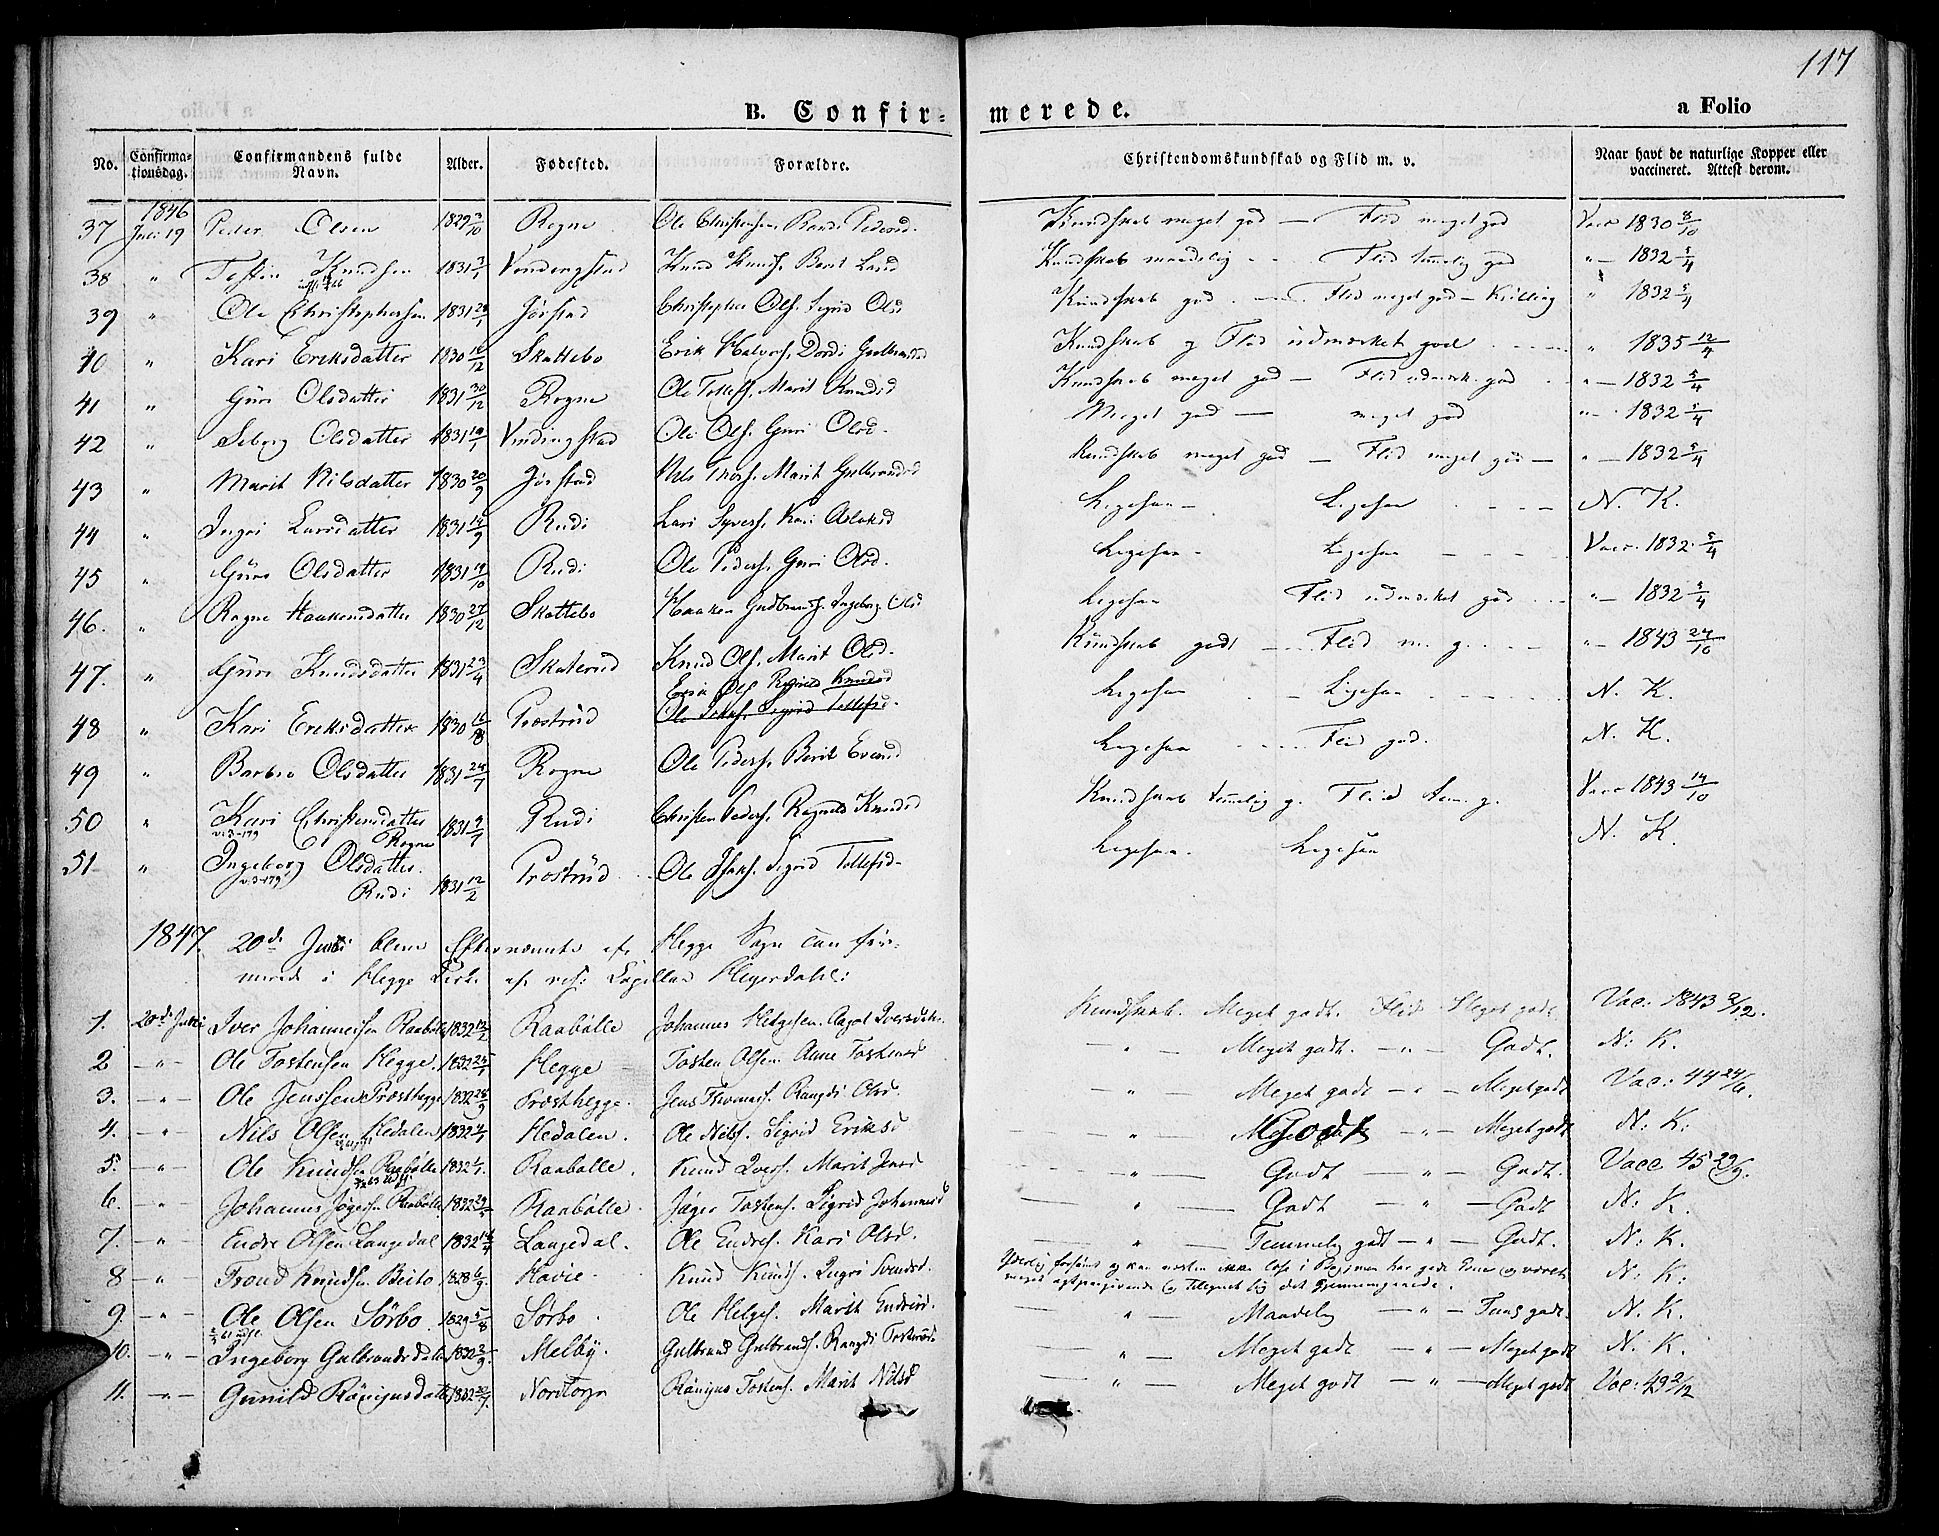 117
B. Confir=merede. a Folio
No. Confirma-tionsdag. Confirmandens fulde Navn. Alder. Fødested. Forældre. Christendomskundskab og Flid m. v. Naar havt de naturlige Kopper eller vaccineret. Attest derom.
1846
37 Juli 19 Peder Olsen 1829 3/10 Rogne Ole Christensen Pedersd. Kundskab meget god — Flid meget god Vacc 1830 8/10
38 " Knudsen 1831 3/1 Vindingstad Knud Knuds. Berit Larsd Kundskab maadelig - - Flid temmelig god " — 1832 5/4
39 " Ole Christophersen 1831 Jørstad Christopher Ols. Sigrid Olsd Kundskab god - — Flid meget god — " 1832 5/4
40 " Kari Eriksdatter 1830 16/12 Skattebo Erik Halvors. Dordi Gulbrandsd Kundskab og Flid udmærket god - - - " 1835 12/4
41 " Guri Olsdatter 1831 30/12 Rogne Ole Tollefs. Marit Knudsd Kundskab meget god — Flid udmærk. god " — 1832 5/4
42 " Seborg Olsdatter 1831 19/1 Vindingstad Ole Ols. Guri Olsd. Meget god — meget god " — 1832 5/4
43 " Marit Nilsdatter 1830 20/9 Jørstad Nils Thors. Marit Gulbrandsd Kundskab meget god — Flid meget god — " — 1832 5/4
44 " Ingri Larsdatter 1831 14/9 Rudi Lars Syvers. Kari Aslaksd Ligesaa — Ligesaa - - - — N. K.
45 " Guri Olsdatter 1831 19/10 Rudi Ole Peders. Guri Olsd. Ligesaa - Ligesaa - - - — Vacc. 1832 5/4
46. " Ragne Haakensdatter 1830 27/12 Skattebo Haaken Gudbrands. Ingeborg Olsd Ligesaa Flid udmærket god - - " — 1832 5/4
47. " Guri Knudsdatter 1831 23/4 Skaterud Knud Ols. Marit Olsd. Kundskab godt - — Flid m. g. - - — " — 1843 24/10
48 " Kari Eriksdatter 1830 16/8 Præstrud Erik Ols. Ragnild Knudsd Ligesaa - - Ligesaa - - - - N. K.
Ole Sigrid Tollefsd.
49 " Barbro Olsdatter 1831 24/7 Rogne Ole Peders. Berit Evensd Ligesaa - - - - Flid god. N. K.
50 " Kari Christensdatter 1831 9/7 Rudi Christen Peders. Ragnild Knudsd Kundskab temmelig g. Flid tem. g. Vacc 1843 14/10
v.3-179 Rogne
51 " Ingeborg Olsdatter. 1831 12/2 Præstrud Ole Sigrid Tollefsd. Ligesaa. Ligesaa N. K.
v.3-179 Rudi
1847 20de Juni bleve Efternævnte af Hegge Sogn confir-
merede i Hegge Kirke af res: Capellan Heyerdahl:
1. 20de Juni Iver Johannessen Raabølle 1832 12/2 Raabølle Johannes Helgesen. Iversdatter. Kundskab. Meget godt. Flid Meget godt Vac: 1843 2/12.
2 — " — Ole Tostensen Hegge. 1832 25/1 Hegge Tosten Olsen. Anne Tostensd — " — Meget godt. — " — Godt. N: K.
3. — " — Ole Jenssen Præsthegge 1832 28/9 Præsthegge. Jens Thomas. Rangdi Olsd. " — Meget godt — " — Meget godt Vac: 44 24/6.
4. — " — Nils Olsen Hedalen 1832 4/1 Hedalen. Ole Nils. Sigrid Eriksd — " — Godt — " — Meget godt N: K.
5. — " — Ole Knudsen Raabølle 1832 Raabølle. Knud Ivers. Marit Jensd " Godt — " — Godt. Vacc 45 29/9.
6. — " — Johannes Jøgers. Raabølle 1832 29/ Raabølle. Jøger Tostens. Sigrid Johannesd — " — Godt — " — Godt N: K.
7. — " — Endre Olsen Langedal 1832 14/4 Langedal. Ole Endres. Kari Olsd. — " — Temmelig godt — " — Godt. N: K.
8 — " — Trond Knudsen Beito 1828 6/9. Havie. Knud Knuds. Ingri Svendsd. Yderlig forsømt og kan næsten ikke læse i Bog, men har gode Evner og været
meget agtpaagivende og tilegnet sig det Gjennemgaaede. N: K:
9. — " — Ole Olsen Sørbo 1829 5/8 Sørbo. Ole Helges. Marit Endresd. — " — Maadelig — " — Tems godt. N. K.
10. — " — Ingeborg Gulbrandsdatter 1832 3/9. Melby. Gulbrand Gulbrands. Rangdi Tostensd. — " — Meget godt — " — Meget godt N. K.
11. — " — Gunild Rønjusdatter 1832 Nordtorp Rønjus Tostens. Marit Nilsd — " — Meget godt — " — Meget godt Vac: 49 2/12